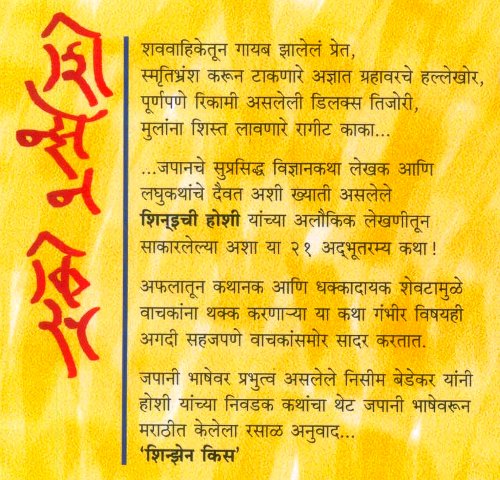 शववाहिकेतून गायब झालेलं प्रेत,
स्मृतिभ्रंश करून टाकणारे अज्ञात ग्रहावरचे हल्लेखोर,
पूर्णपणे रिकामी असलेली डिलक्स तिजोरी,
मुलांना शिस्त लावणारे रागीट काका...
...जपानचे सुप्रसिद्ध विज्ञानकथा लेखक आणि
लघुकथांचे दैवत अशी ख्याती असलेले
शिन्इची होशी यांच्या अलौकिक लेखणीतून
साकारलेल्या अशा या २१ अद्‌भूतरम्य कथा !
अफलातून कथानक आणि धक्कादायक शेवटामुळे
वाचकांना थक्क करणाऱ्या या कथा गंभीर विषयही
अगदी सहजपणे वाचकांसमोर सादर करतात.
जपानी भाषेवर प्रभुत्व असलेले निसीम बेडेकर यांनी
होशी यांच्या निवडक कथांचा थेट जपानी भाषेवरून
मराठीत केलेला रसाळ अनुवाद...
‘शिन्झेन किस’